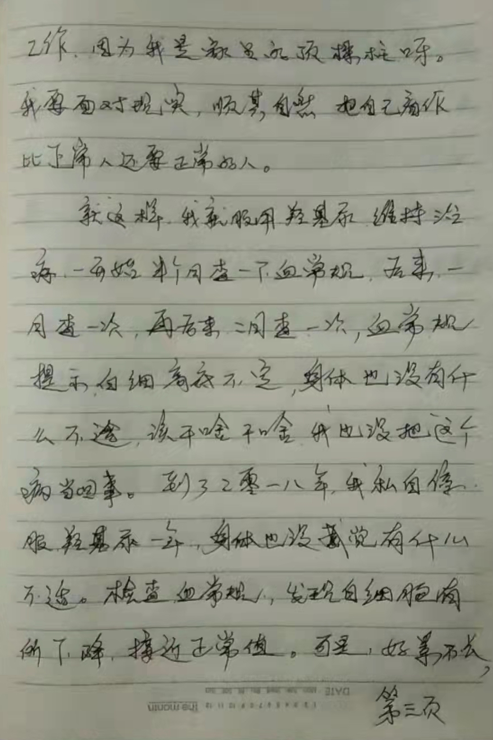 工作,因为我是家里的顶樑柱呀。
我要面对现实,顺其自然 把自己看作
比正常人还要正常的人。
就这样,我就服用羟基尿 维持治
病,一开始半个月查一下血常规,后来,一
月查一次,再后来二月查一次,血常规
提示白细高底不定,身体也没有什
么不适,该干啥干啥 我也没把这个
病当回事。到了二零一八年,我私自停
服羟基尿一年,身体也没感觉有什么
不适。检查血常规,发现白细胞有
所下降,接近正常值。可是,好景不长,
DATE
the month
第三页